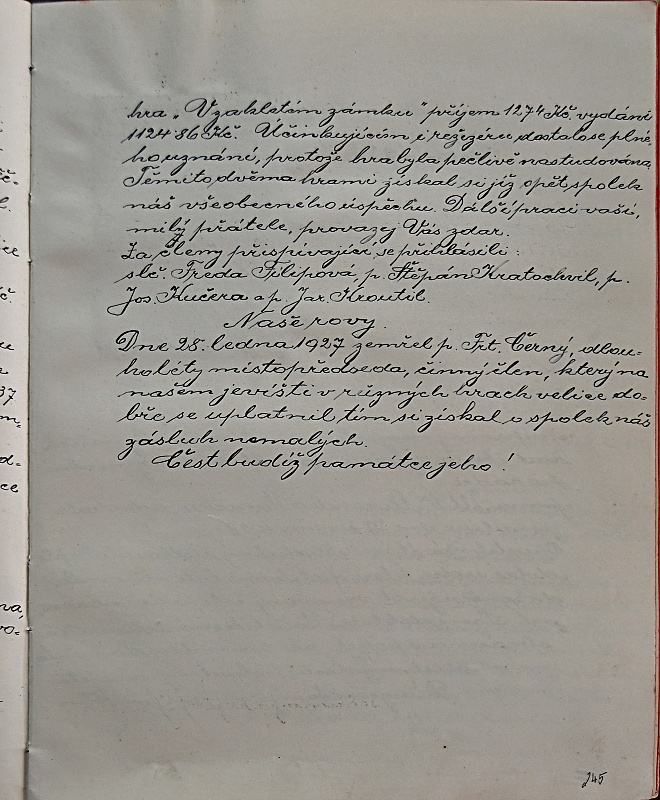 hra „V zakletém zámku" příjem 1274 Kč, vydání
1124·86 Kč. Účinkujícím i režizéru dostalo se plné-
ho uznání, protože hra byla pečlivě nastudována.
Těmito dvěma hrami získal si již opět spolek
náš všeobecného úspěchu. Další práci vaší,
milý přátele, provázej Vás zdar.
Za členy přispívající se přihlásili:
slč. Freda Filipová, p. Štěpán Kratochvil, p.
Jos. Kučera a p. Jar. Kroutil.
Naše rovy.
Dne 28. ledna 1927 zemřel p. Frt. Černý, dlou-
holetý místopředseda, činný člen, který na
našem jevišti v různých hrach velice do-
bře se uplatnil tím si získal o spolek náš
zásluh nemalých.
Čest budiž památce jeho!
245